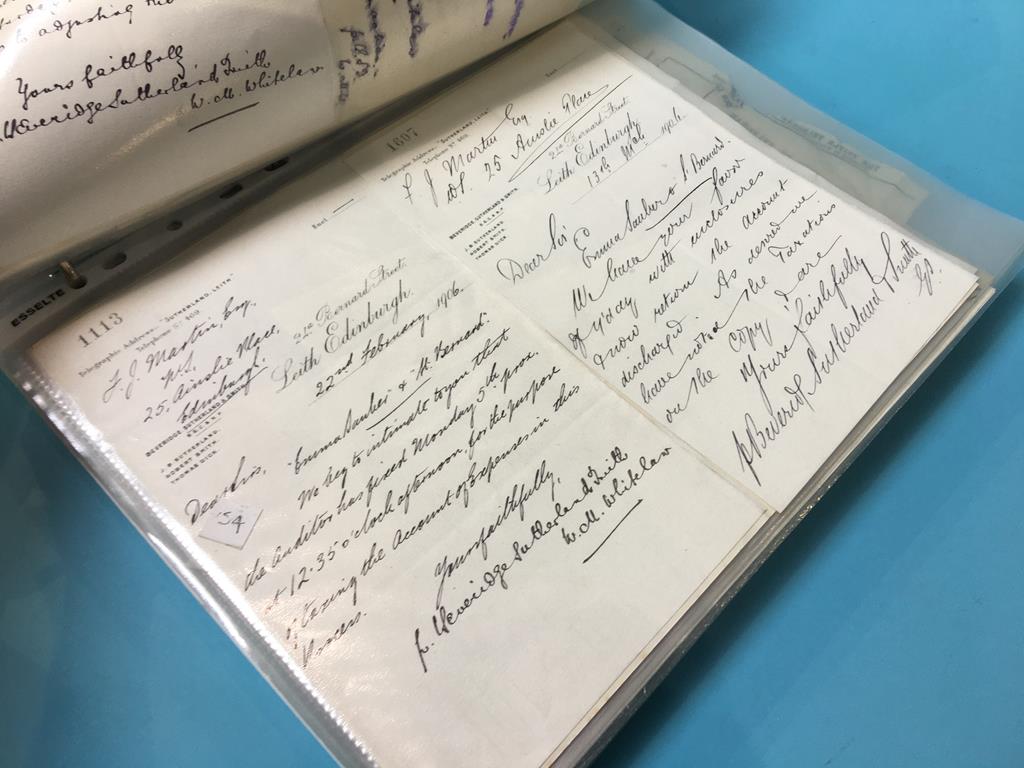 to adjusting the
Yours faithfully
Beveridge Sutherland & Smith
W. M. Whitelaw
ESSELTE
1113
Telegraphic Address:- "SUTHERLAND, LEITH"
Telephone Nº 909.
F. J. Martin, Esq.,
W.S.
25, Ainslie Place,
Edinburgh.
BEVERIDGE, SUTHERLAND & SMITH,
S.S.C. & N.P.
J. B. SUTHERLAND
ROBERT SMITH
THOMAS DICK
Encl
2 1a Bernard Street.
Leith Edinburgh
22nd February, 1906.
Dear Sir,
"Emma Sauber" & "St. Bernard".
We beg to intimate to you that
the Auditor has fixed Monday 5th prox.
at 12:35 o'clock afternoon, for the purpose
of taxing the Account of Expenses in this
Process.
Yours faithfully,
p. Beveridge Sutherland & Smith
W. M. Whitelaw
54
1607
Telegraphic Address:- "SUTHERLAND, LEITH"
Telephone Nº 909.
F. J. Martin Esq
W.S. 25 Ainslie Place
BEVERIDGE, SUTHERLAND & SMITH,
S.S.C. & N.P.
J. B. SUTHERLAND
ROBERT SMITH
THOMAS DICK
Encl
2 1a Bernard Street.
Leith Edinburgh
13th Mch. 1906
Dear Sir
Emma Sauber v St. Bernard.
We have your favor
of y'day with enclosures
& now return the account
discharged. As desired we
have noted the Taxations
on the copy
& are
Yours faithfully
p Beveridge Sutherland & Smith